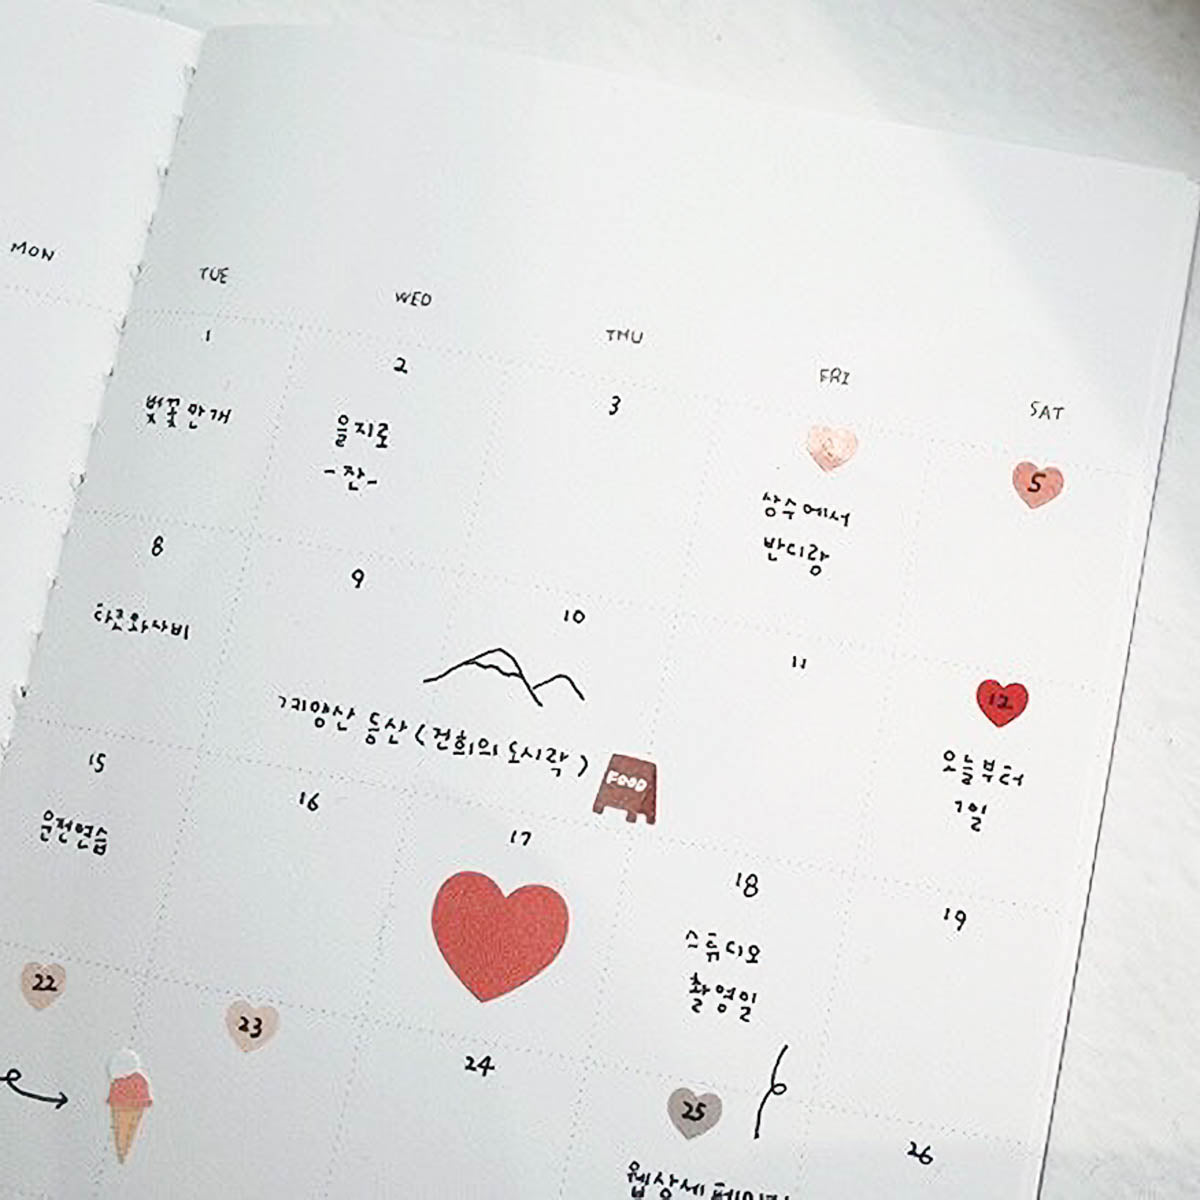 MON
TUE
WED
THU
FRI
SAT
1
벚꽃만개
2
을지로
-짠-
3
상수에서
반디랑
5
8
9
10
계양산 등산 (건희의 도시락)
FOOD
11
12
오늘부터
1일
15
운전연습
16
17
18
스튜디오
촬영일
19
22
23
24
25
26